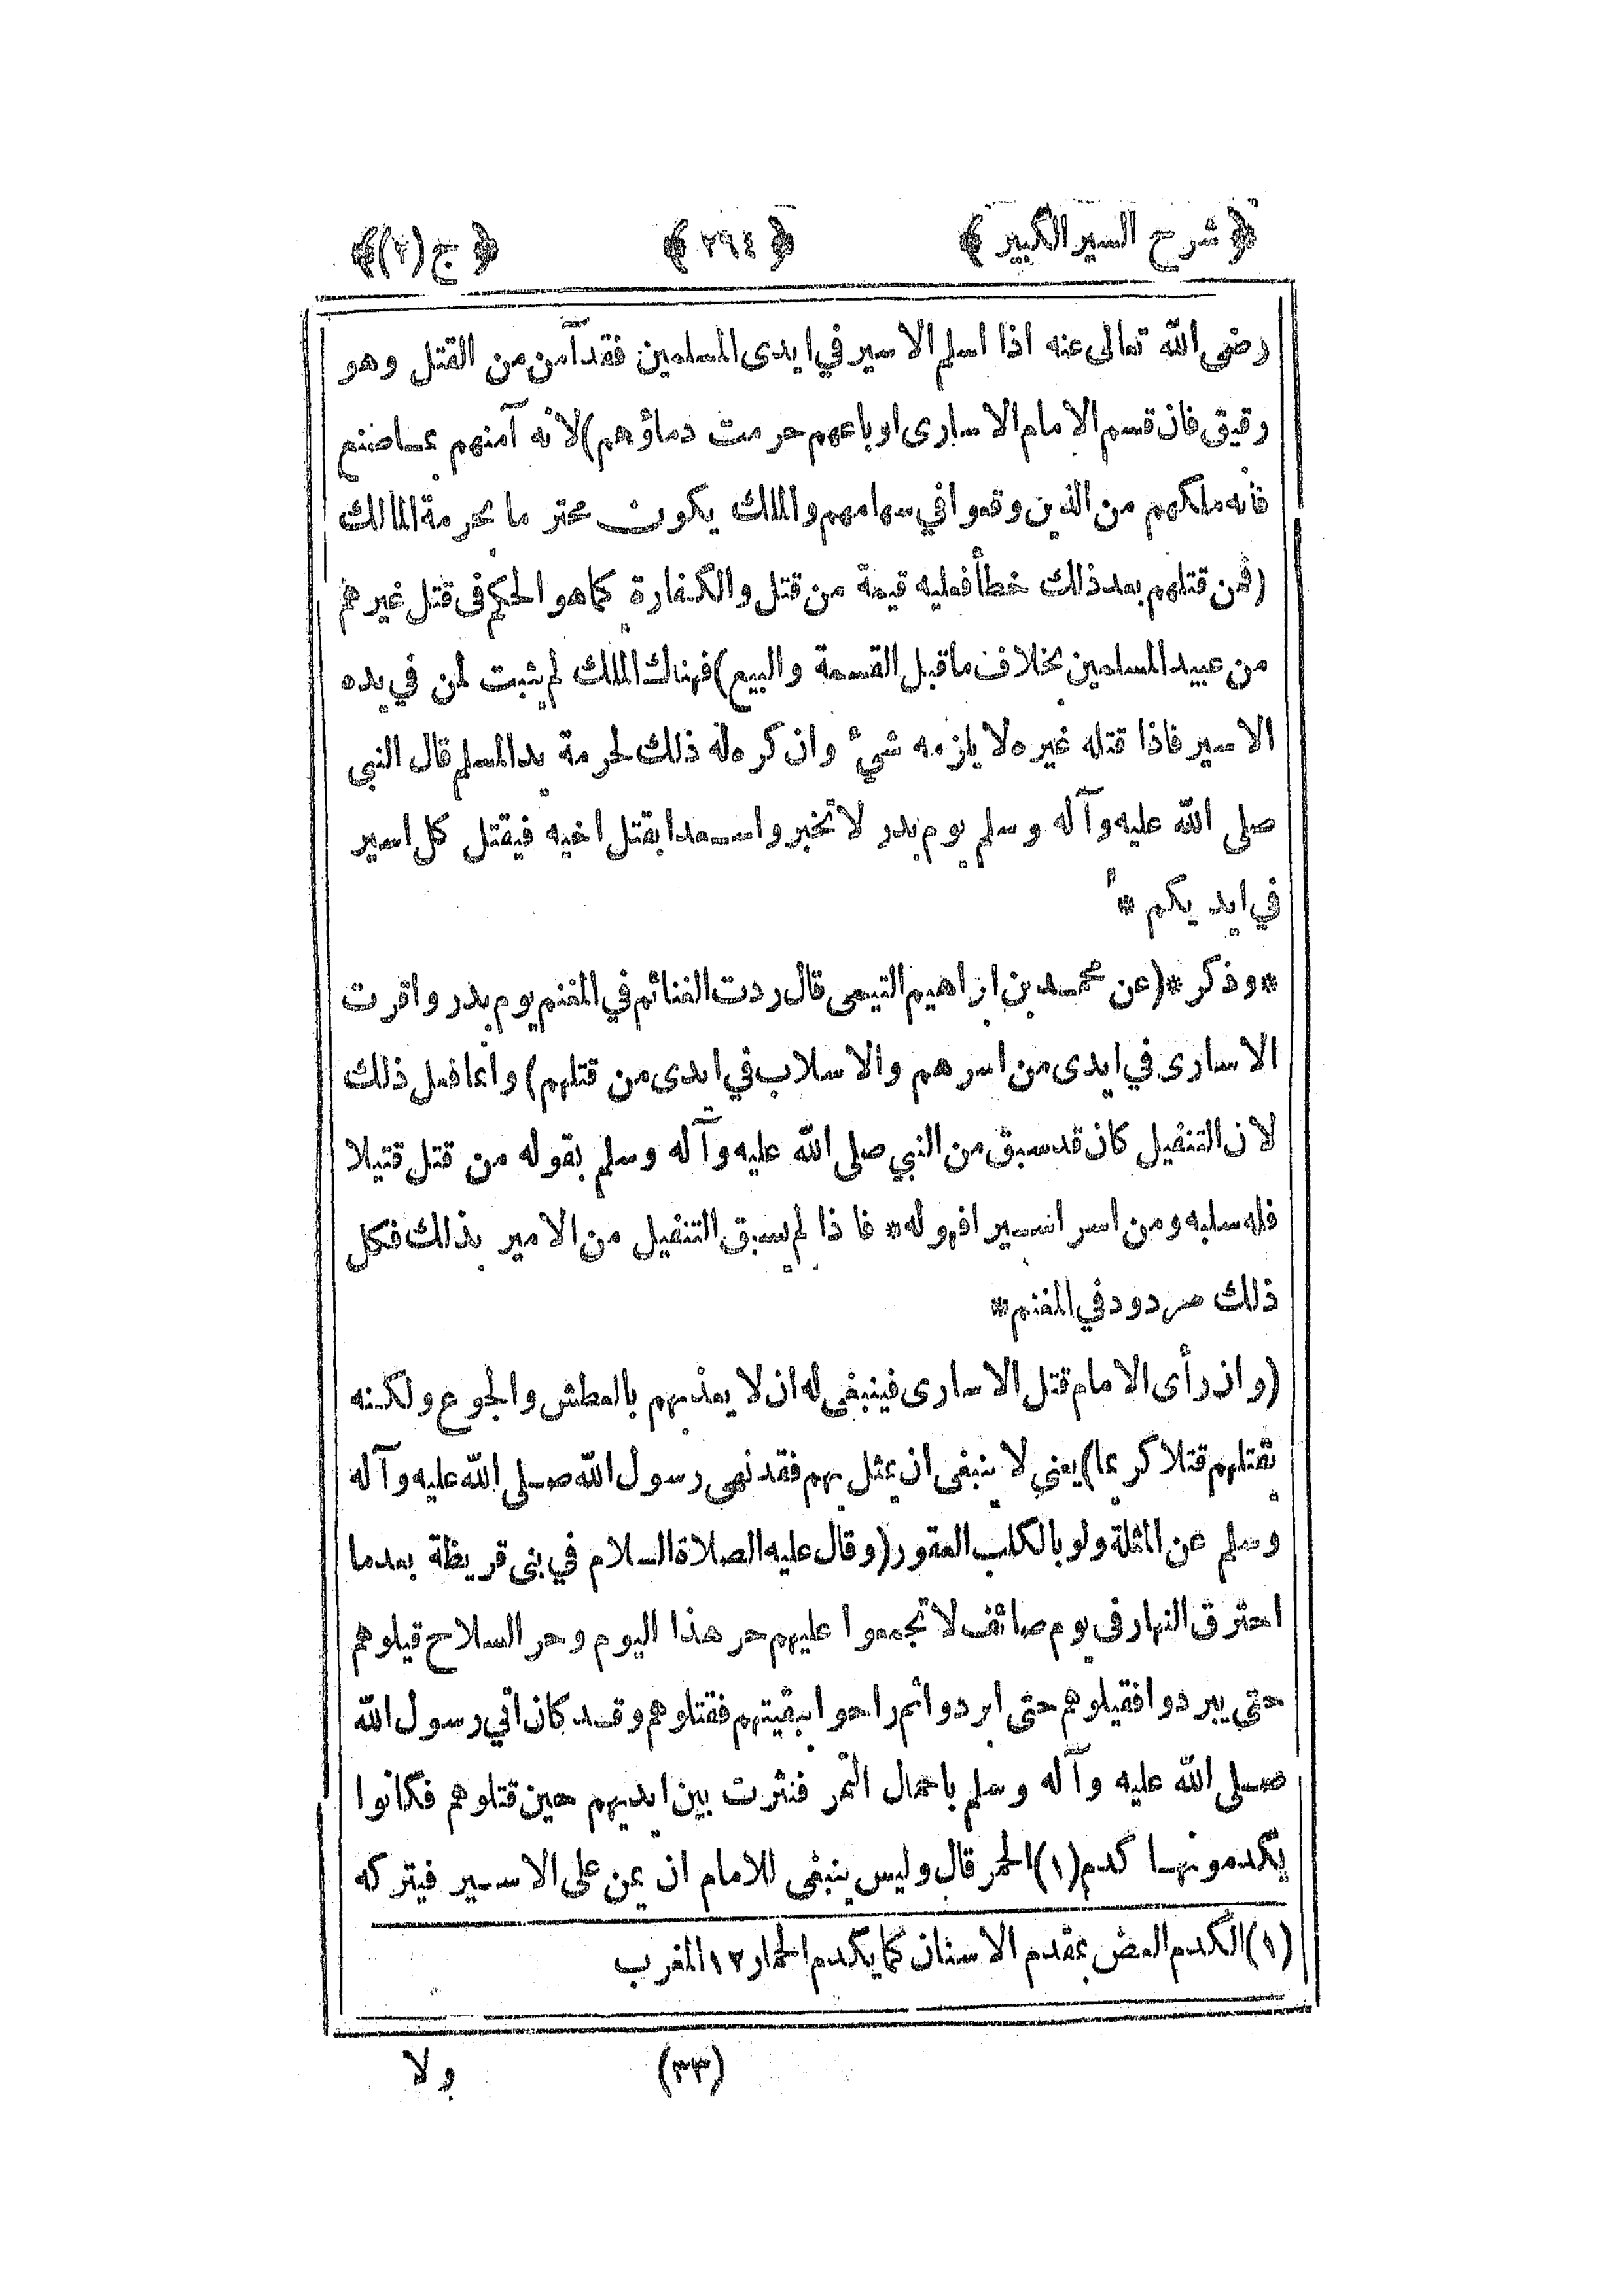 ﴿ شرح السير الكبير ﴾ ﴿ ٢٩٤ ﴾ ﴿ ج (٢) ﴾
رضى الله تعالى عنه اذا اسلم الاسير في ايدى المسلمين فقد آمن من القتل وهو
رقيق فان قسم الامام الاسارى او باعهم حرمت دماؤهم) لانه آمنهم بما صنع
فانه ملكهم من الذين وقعوا في سهامهم والملك يكون محترما بحرمة المالك
(فمن قتلهم بعد ذلك خطأ فعليه قيمة من قتل والكفارة كما هو الحكم فى قتل غيرهم
من عبيد المسلمين بخلاف ما قبل القسمة والبيع) فهناك الملك لم يثبت لمن في يده
الاسير فاذا قتله غيره لا يلزمه شيء وان كره له ذلك لحرمة يد المسلم قال النبي
صلى الله عليه وآله وسلم يوم بدر لا تخبروا سعدا بقتل اخيه فيقتل كل اسير
في ايديكم *
*وذكر *(عن محمد بن ابراهيم التيمى قال ردت الغنائم في المغنم يوم بدر واقرت
الاسارى في ايدى من اسرهم والاسلاب في ايدى من قتلهم) وانما فعل ذلك
لان التنفيل كان قد سبق من النبي صلى الله عليه وآله وسلم بقوله من قتل قتيلا
فله سلبه ومن اسر اسيرا فهو له* فاذا لم يسبق التنفيل من الامير بذلك فكل
ذلك مردود في المغنم*
(وان رأى الامام قتل الاسارى فينبغى له ان لا يعذبهم بالعطش والجوع ولكنه
يقتلهم قتلا كريما) يعنى لا ينبغى ان يمثل بهم فقد نهى رسول الله صلى الله عليه وآله
وسلم عن المثلة ولو بالكلب العقور (وقال عليه الصلاة السلام في بنى قريظة بعد ما
احترق النهار فى يوم صائف لا تجمعوا عليهم حر هذا اليوم وحر السلاح قيلوهم
حتى يبردوا فقيلوهم حتى ابردوا ثم راحوا ببقيتهم فقتلوهم وقد كان اتي رسول الله
صلى الله عليه وآله وسلم باحمال التمر فنثرت بين ايديهم حين قتلوهم فكانوا
يكدمونها كدم (١) الحمر قال وليس ينبغى للامام ان يمن على الاسير فيتركه
(١) الكدم العض بمقدم الاسنان كما يكدم الحمار ١٢ المغرب
(٣٣) ولا